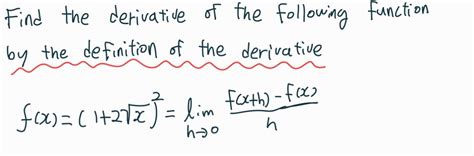 Find the derivative of the following function
by the definition of the derivative
f(x) = (1+2√x)² = lim h→0 f(x+h) - f(x) / h